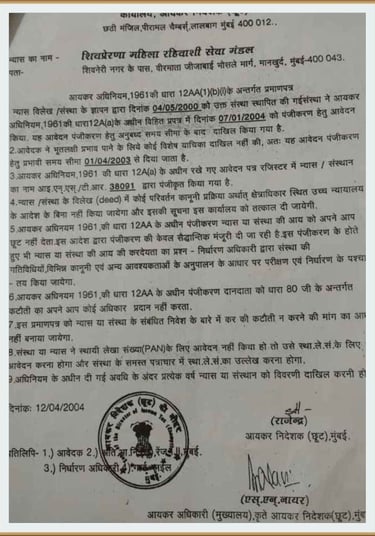 कार्यालय, आयकर निदेशक (छूट)
छठी मंजिल, पीरामल चैम्बर्स, लालबाग मुंबई 400 012.
न्यास का नाम - शिवप्रेरणा महिला रहिवाशी सेवा मंडल
पता- शिवनेरी नगर के पास, पीरमाता जीजाबाई भोसले मार्ग, मानखुर्द, मुंबई-400 043.
आयकर अधिनियम,1961की धारा 12AA(1)(b)(i)के अन्तर्गत प्रमाणपत्र
न्यास विलेख /संस्था के ज्ञापन द्वारा दिनांक 04/05/2000 को उक्त संस्था स्थापित की गईसंस्था ने आयकर
अधिनियम,1961की धारा12A(a)के अधीन विहित प्रपत्र में दिनांक 07/01/2004 को पंजीकरण हेतु आवेदन
किया. यह आवेदन पंजीकरण हेतु अनुबध्द समय सीमा के बाद दाखिल किया गया है.
2.आवेदक ने भूतलक्षी प्रभाव पाने के लिये कोई विशेष याचिका दाखिल नहीं की, अतः यह आवेदन पंजीकरण
हेतु प्रभावी समय सीमा 01/04/2003 से दिया जाता है.
3.आयकर अधिनियम,1961 की धारा 12A के अधीन रखे गए आवेदन पत्र रजिस्टर में न्यास / संस्थान
का नाम आइ.एन.एस/टी.आर. 38091 द्वारा पंजीकृत किया गया है.
4.न्यास /संस्था के विलेख (deed) में कोई परिवर्तन कानूनी प्रक्रिया अर्थात् क्षेत्राधिकार स्थित उच्च न्यायालय
के आदेश के बिना नहीं किया जायेगा और इसकी सूचना इस कार्यालय को तत्काल दी जायेगी.
5.आयकर अधिनियम,1961 की धारा 12AA के अधीन पंजीकरण न्यास या संस्था की आय को अपने आप
छूट नहीं देता.इस आदेश द्वारा पंजीकरण की केवल सैद्धान्तिक मंजूरी दी जा रही है.इस पंजीकरण के होते
हुए भी न्यास या संस्था की आय की करदेयता का प्रश्न - निर्धारण अधिकारी द्वारा संस्था की
गतिविधियों,विभिन्न कानूनी एवं अन्य आवश्यकताओं के अनुपालन के आधार पर परीक्षण एवं निर्धारण के पश्चा
- तय किया जायेगा.
6.आयकर अधिनियम 1961,की धारा 12AA के अधीन पंजीकरण दानदाता को धारा 80 जी के अन्तर्गत
कटौती का अपने आप कोई अधिकार प्रदान नहीं करता.
7.इस प्रमाणपत्र को न्यास या संस्था के संबंधित निवेश के बारे में कर की कटौती न करने की मांग का आ
नहीं बनाया जायेगा.
8.संस्था या न्यास ने स्थायी लेखा संख्या(PAN)के लिए आवेदन नहीं किया हो तो उसे स्था.ले.सं.के लिए
आवेदन करना होगा और संस्था के समस्त पत्राचार में स्था.ले.सं.का उल्लेख करना होगा.
9.अधिनियम के अधीन दी गई अवधि के अंदर प्रत्येक वर्ष न्यास या संस्थान को विवरणी दाखिल करनी हो
दिनांक: 12/04/2004
(राजेन्द्र)
आयकर निदेशक (छूट),मुंबई.
प्रतिलिपि- 1.) आवेदक 2.)
3.) निर्धारण अधिकारी
(एस.एन.नायर)
आयकर अधिकारी (मुख्यालय),कृते आयकर निदेशक(छूट),मुंब